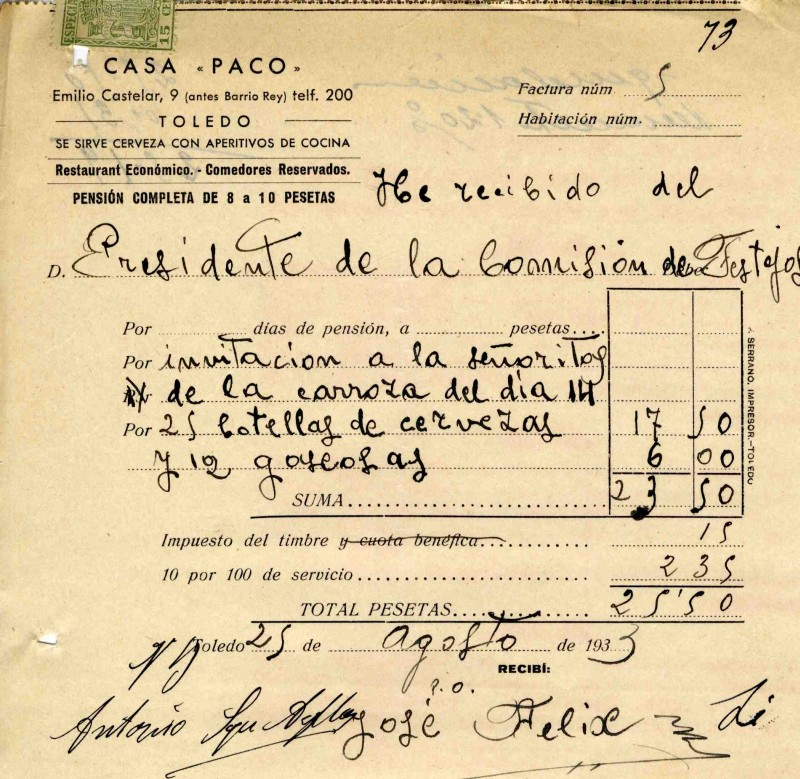 73
ESPECI
15 CE
CASA «PACO»
Emilio Castelar, 9 (antes Barrio Rey) telf. 200
TOLEDO
SE SIRVE CERVEZA CON APERITIVOS DE COCINA
Restaurant Económico. - Comedores Reservados.
PENSIÓN COMPLETA DE 8 a 10 PESETAS
Factura núm 5
Habitación núm.
He recibido del
D. Presidente de la Comisión de Festejos
Por días de pensión, a pesetas
Por invitacion a la señoritas
de la carroza del dia 14
Por 25 botellas de cervezas 17 50
y 12 gaseosas 6 00
SUMA 23 50
Impuesto del timbre y cuota benéfica 15
10 por 100 de servicio 2 35
TOTAL PESETAS 25'50
Toledo 25 de agosto de 1933
RECIBÍ:
P.O.
Antonio José Felix
SERRANO, IMPRESOR.-TOLEDO